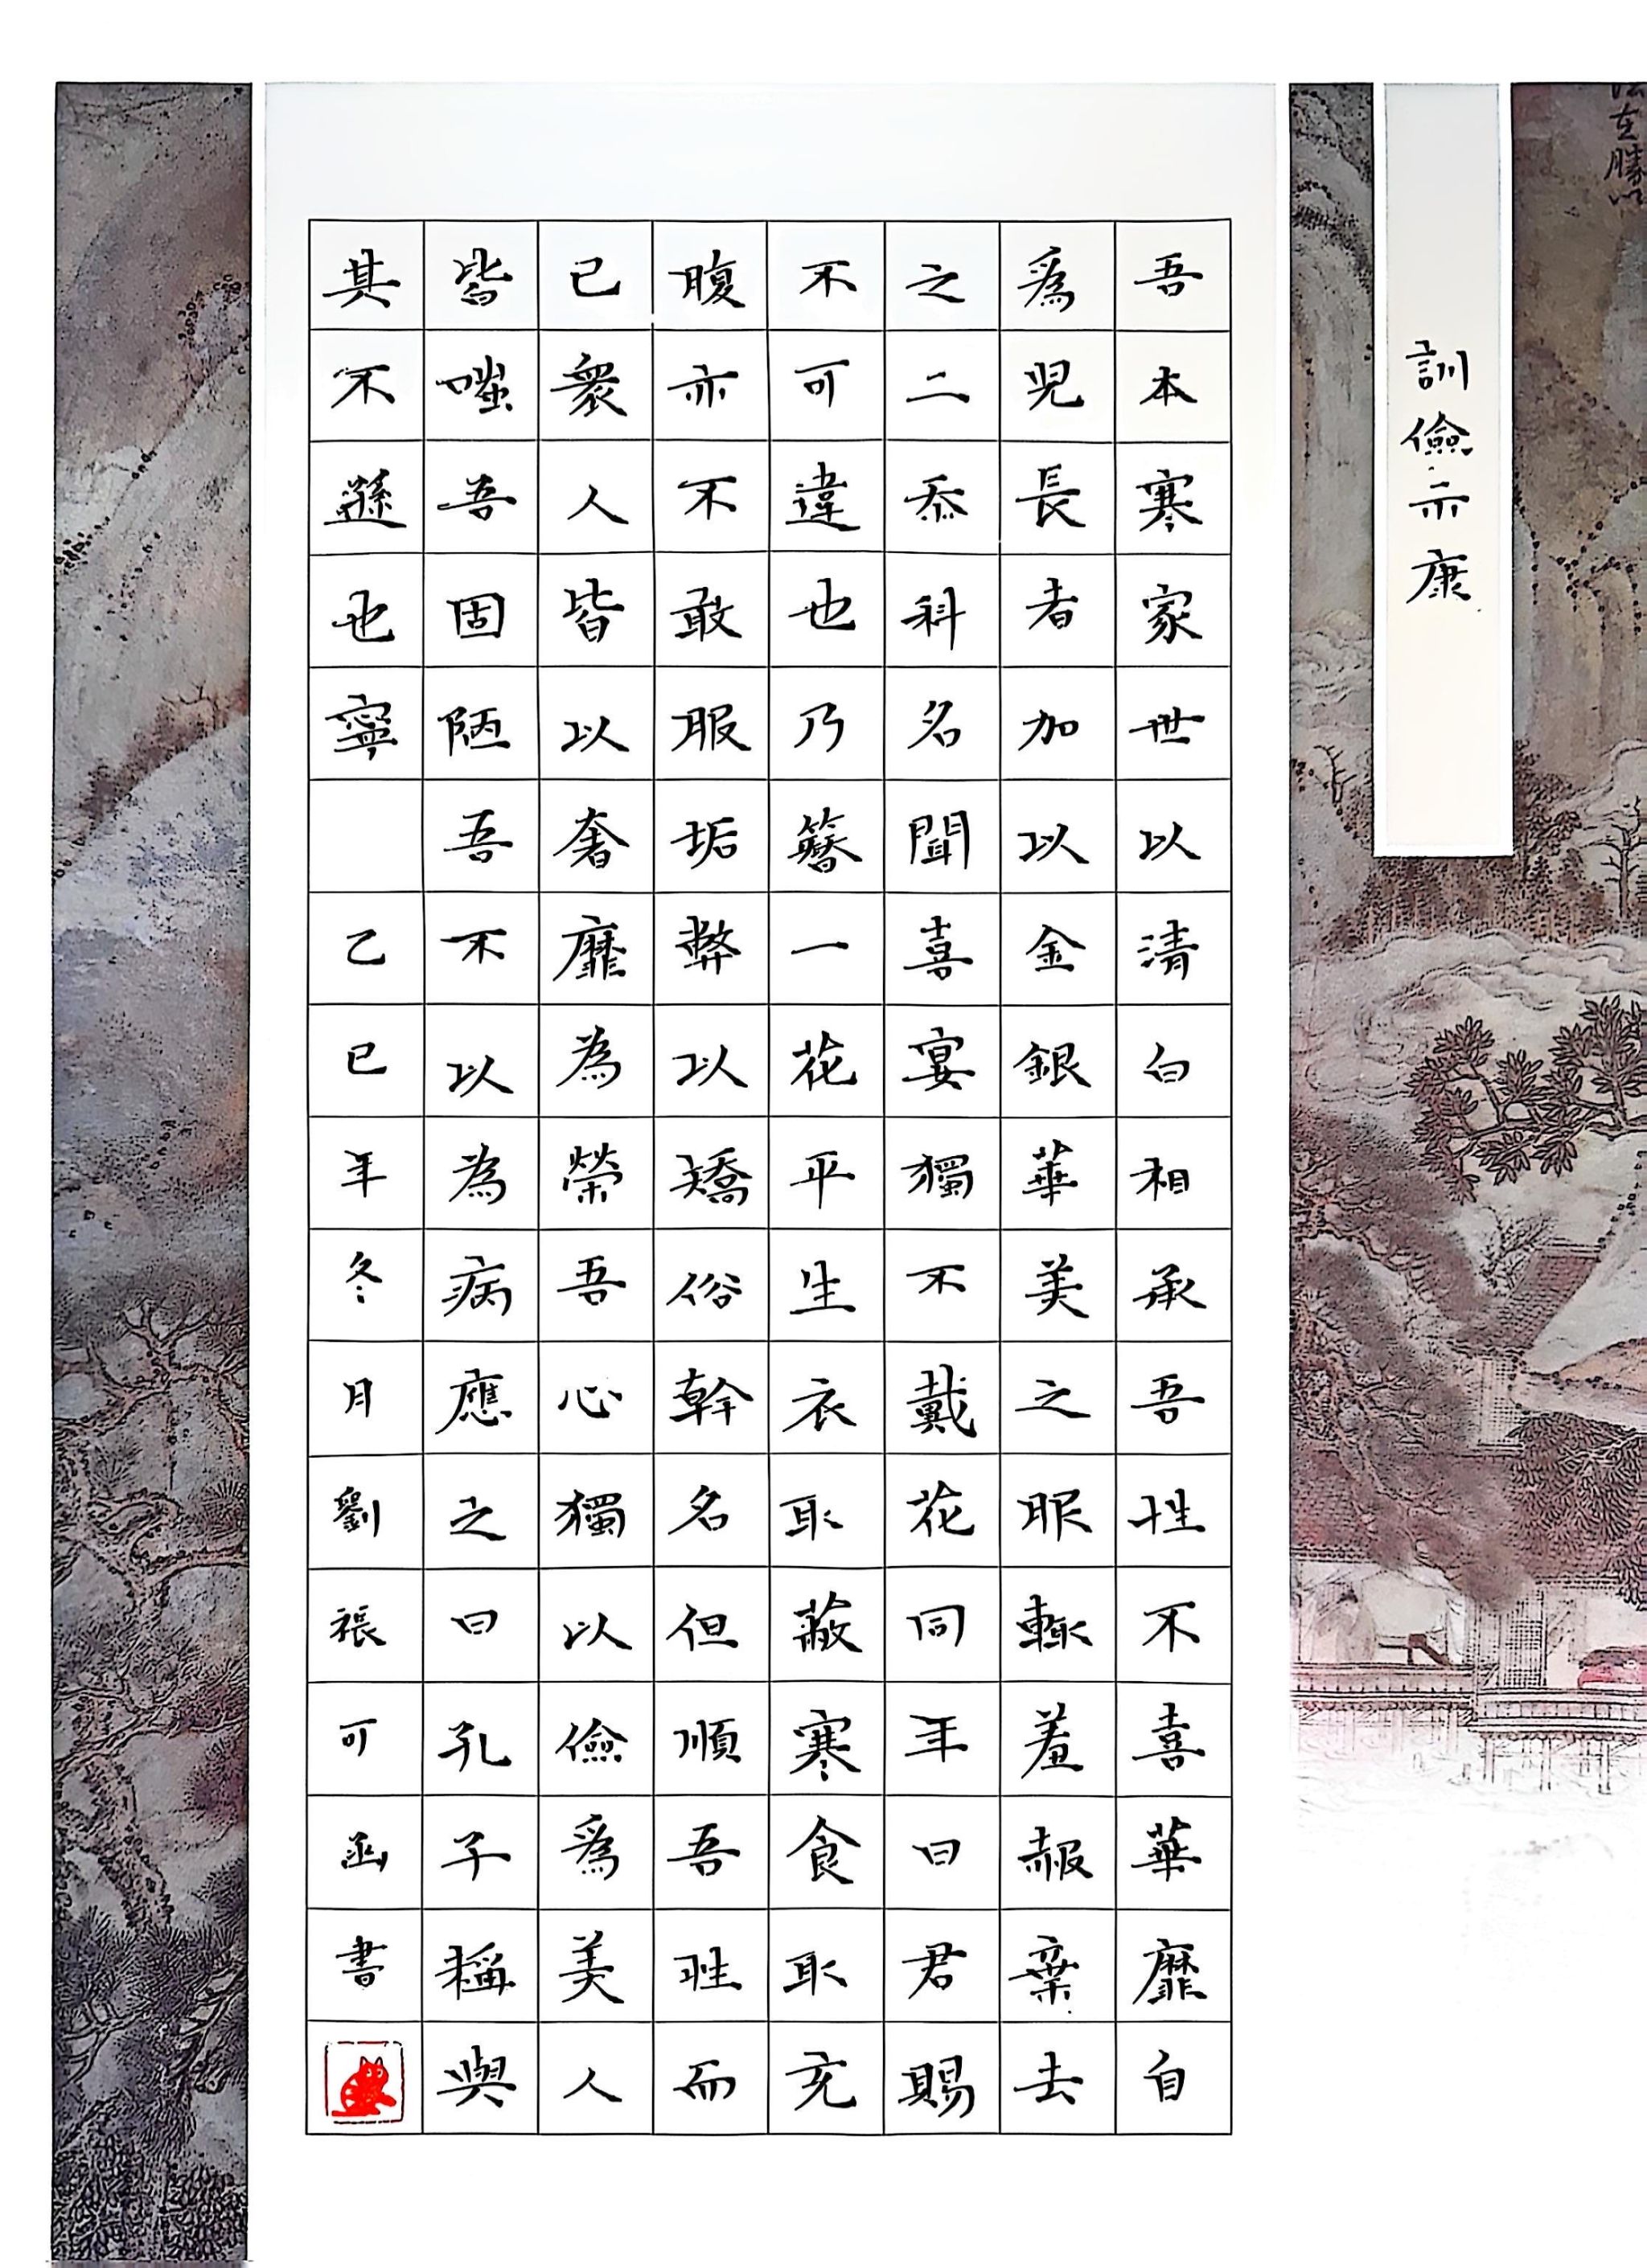 訓儉示康
吾本寒家世以清白相承吾性不喜華靡自
爲児長者加以金銀華美之服輒羞赧棄去
之二忝科名聞喜宴獨不戴花同年曰君賜
不可違也乃簪一花平生衣取蔽寒食取充
腹亦不敢服垢弊以矯俗幹名但順吾性而
已衆人皆以奢靡為榮吾心獨以儉爲美人
皆嗤吾固陋吾不以為病應之曰孔子稱與
其不遜也寧 乙巳年冬月劉張可函書